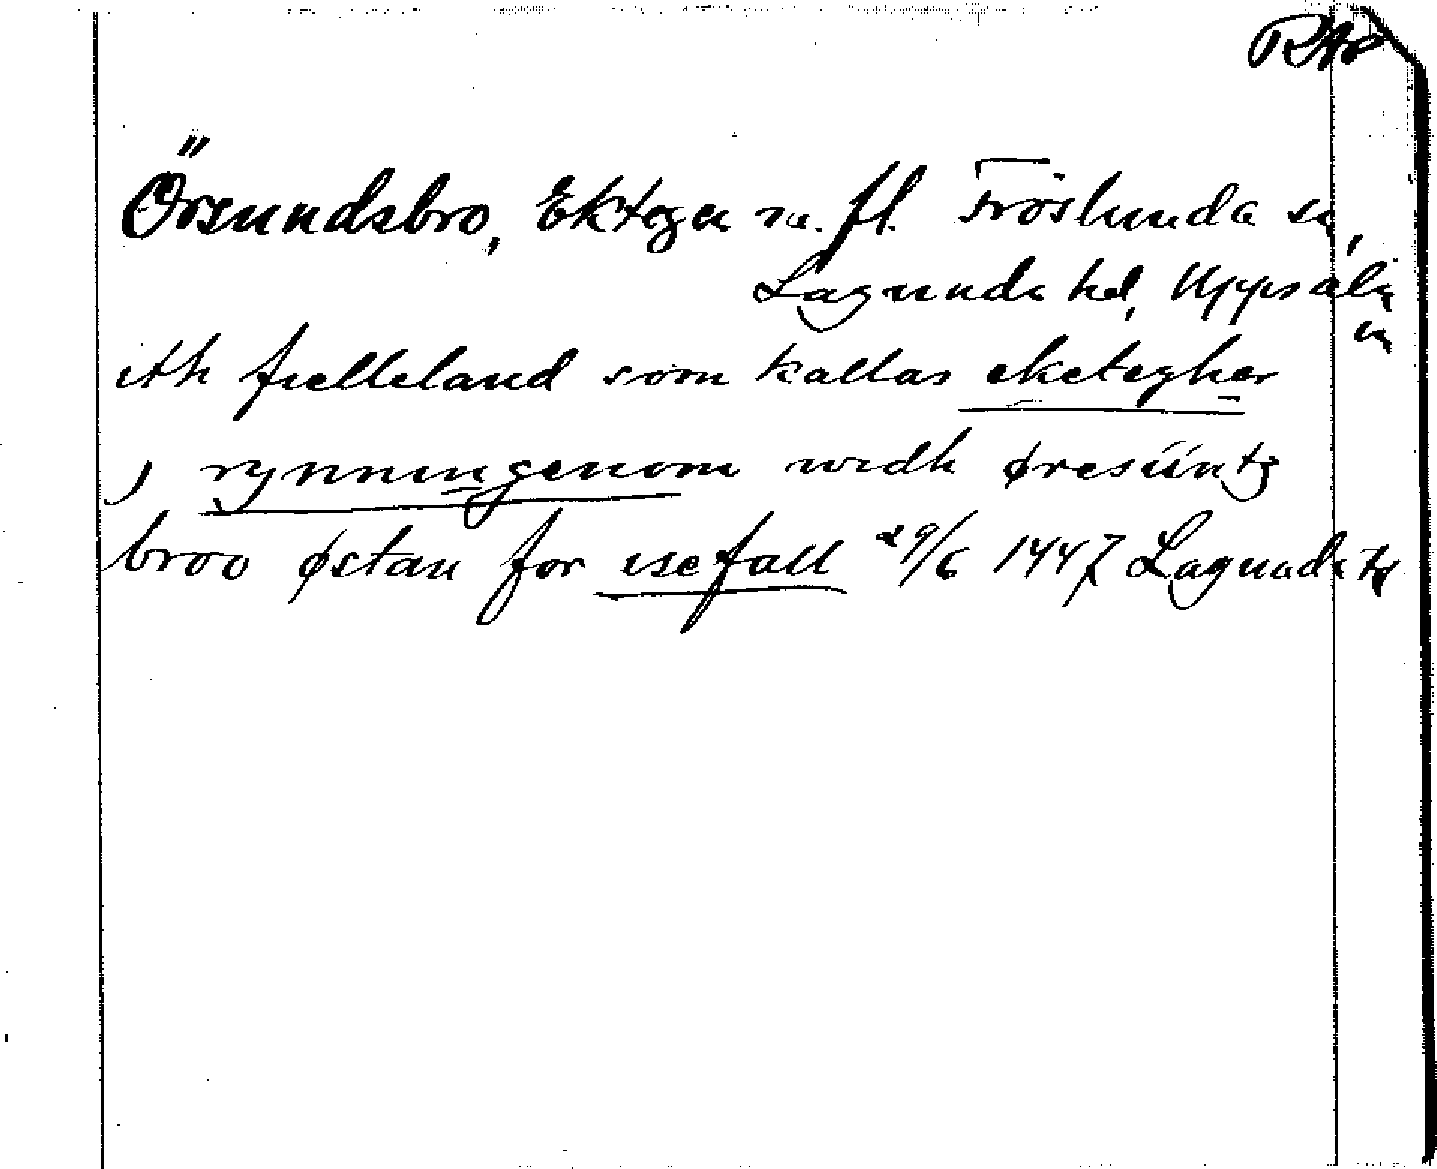 RAp
Örsundsbro, Ekteger m. fl. Fröslunda sn,
Lagunda hd, Uppsala
län
ith fielleland som kallas eketegher
j rynningenom widh øresüntz
broo østan for isefall 29/6 1447 Lagunda hd